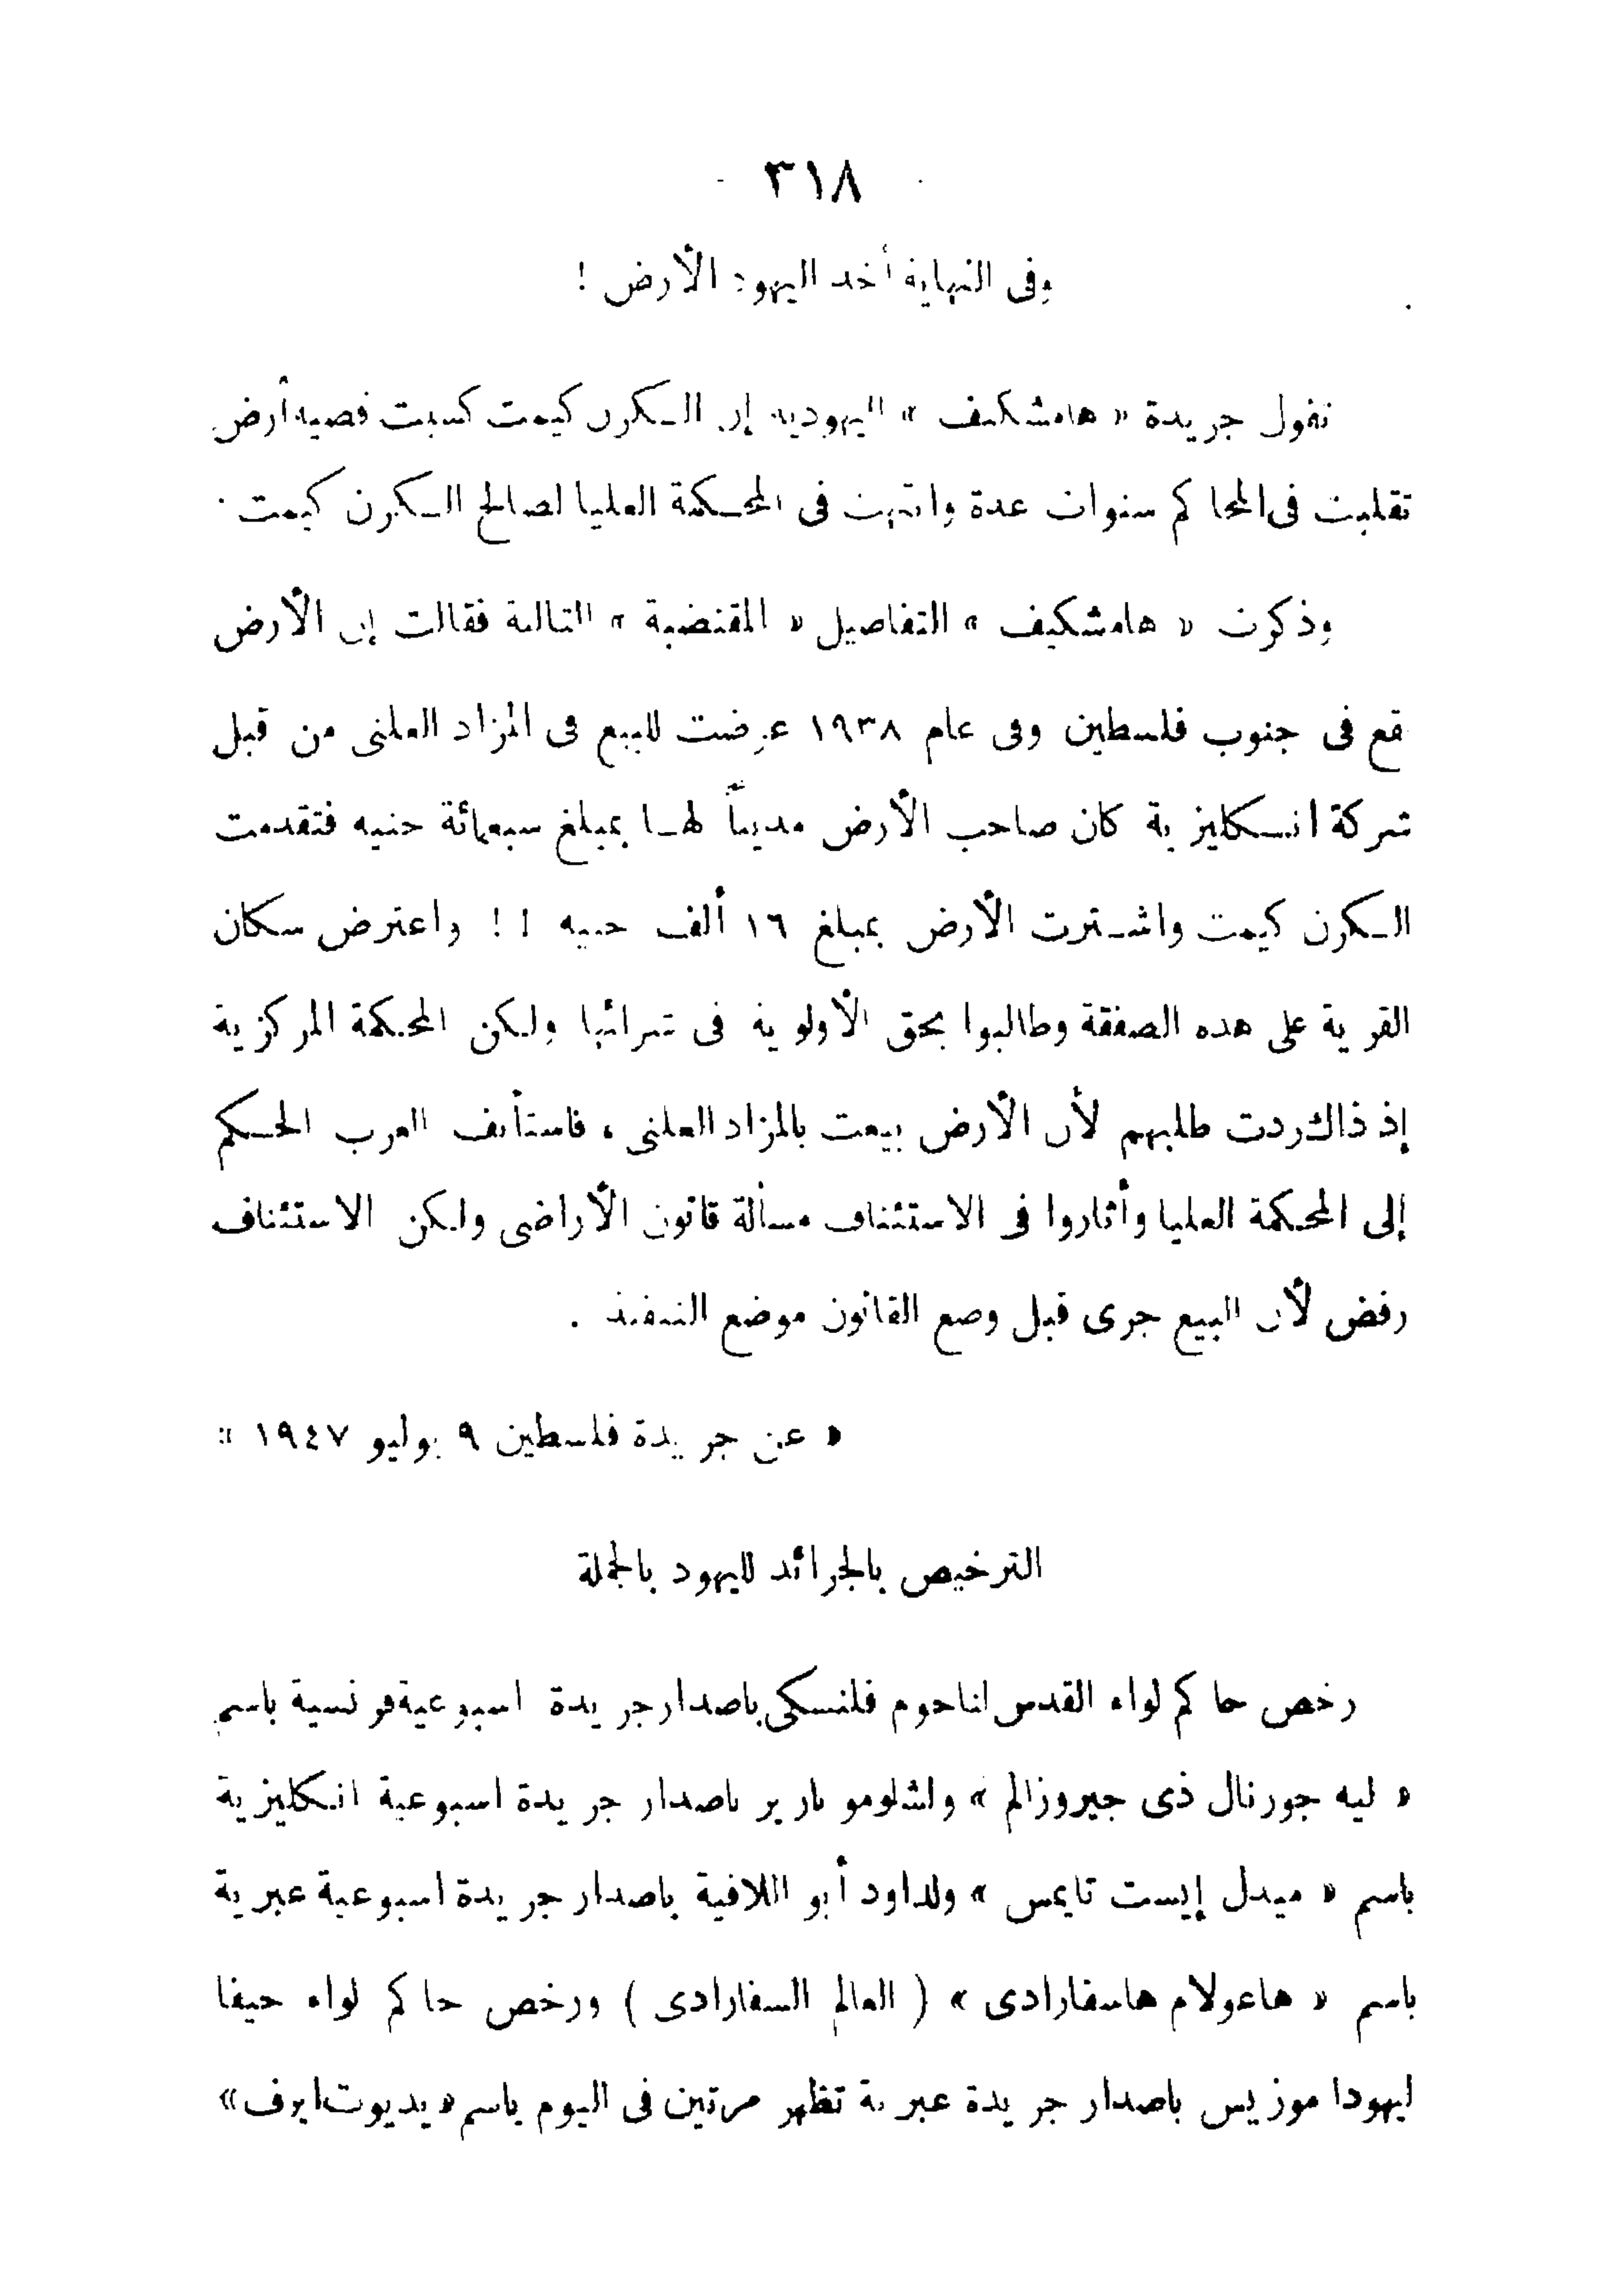 ٣١٨
وفى النهاية أخد اليهود الأرض !
تقول جريدة « هامشكيف » اليهودية إن الكرن كيمت كسبت قضية أرض
تقلبت فى المحاكم سنوات عدة وانتهت فى المحكمة العليا لصالح الكرن كيمت .
وذكرت « هامشكيف » التفاصيل « المقتضبة » التالية فقالت إن الأرض
قع فى جنوب فلسطين وفى عام ١٩٣٨ عرضت للبيع فى المزاد العلنى من قبل
شركة انكليزية كان صاحب الأرض مديناً لها بمبلغ سبعمائة جنيه فتقدمت
الكرن كيمت واشترت الأرض بمبلغ ١٦ ألف جنيه ! ! واعترض سكان
القرية على هده الصفقة وطالبوا بحق الأولوية فى شرائها ولكن المحكمة المركزية
إذ ذاك ردت طلبهم لأن الأرض بيعت بالمزاد العلنى ، فاستأنف العرب الحكم
إلى المحكمة العليا وأثاروا فى الاستئناف مسألة قانون الأراضى ولكن الاستئناف
رفض لأن البيع جرى قبل وضع القانون موضع التنفيذ .
« عن جريدة فلسطين ٩ يوليو ١٩٤٧ »
الترخيص بالجرائد لليهود بالجملة
رخص حاكم لواء القدس لناحوم فلنسكى باصدار جريدة اسبوعية فرنسية باسم
« ليه جورنال ذى جيروزالم » ولشلومو باصدار جريدة اسبوعية انكليزية
باسم « ميدل إيست تايمس » ولداود أبو اللافية باصدار جريدة اسبوعية عبرية
باسم « هاعولام هاسفارادى » ( العالم السفارادى ) ورخص حاكم لواء حيفا
ليهودا موزيس باصدار جريدة عبرية تظهر مرتين فى اليوم باسم « يديوت ايرف »